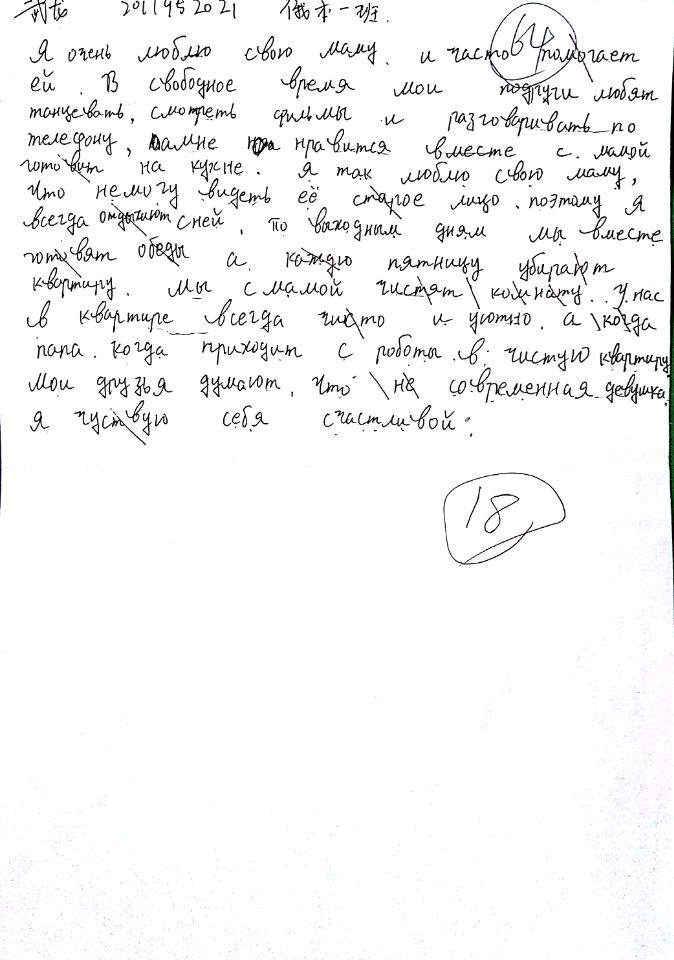 武龙 2011952021 俄本一班.
Я очень люблю свою маму. и часто 64 помогает
ей. В свободное время мои подруги любят
танцевать, смотреть фильмы и разговаривать по
телефону, амне нравится вместе с. мамой
готовит на кухне. я так люблю свою маму,
что немогу видеть её старое лицо. поэтому я
всегда отдыхают сней. по выходным дням мы вместе
готовят обеды а каждую пятницу убирают
квартиру. мы с мамой чистят комнату. У нас
в квартире всегда чисто и уютно. а когда
папа. когда приходит с роботы. в чистую квартиру
мои друзья думают. что не современная девушка
я чуствую себя счастливой.
18